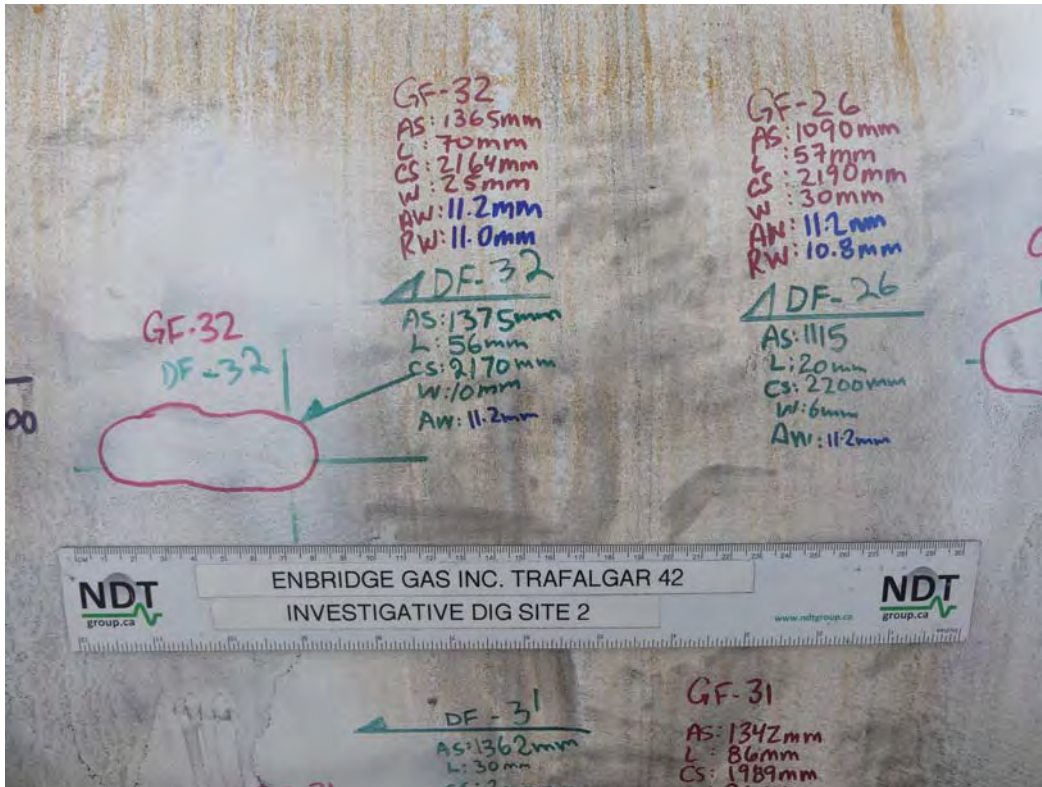 GF-32
AS: 1365mm
L: 70mm
CS: 2164mm
W: 25mm
AW: 11.2mm
RW: 11.0mm
DF-32
AS: 1375mm
L: 56mm
CS: 2170mm
W: 10mm
AW: 11.2mm
GF-26
AS: 1090mm
L: 57mm
CS: 2190mm
W: 30mm
AW: 11.2mm
RW: 10.8mm
DF-26
AS: 1115
L: 20mm
CS: 2200mm
W: 6mm
AW: 11.2mm
GF-32
DF-32
NDT
group.ca
ENBRIDGE GAS INC. TRAFALGAR 42
INVESTIGATIVE DIG SITE 2
www.ndtgroup.ca
NDT
group.ca
DF-31
AS: 1362mm
L: 30mm
GF-31
AS: 1342mm
L: 86mm
CS: 1989mm